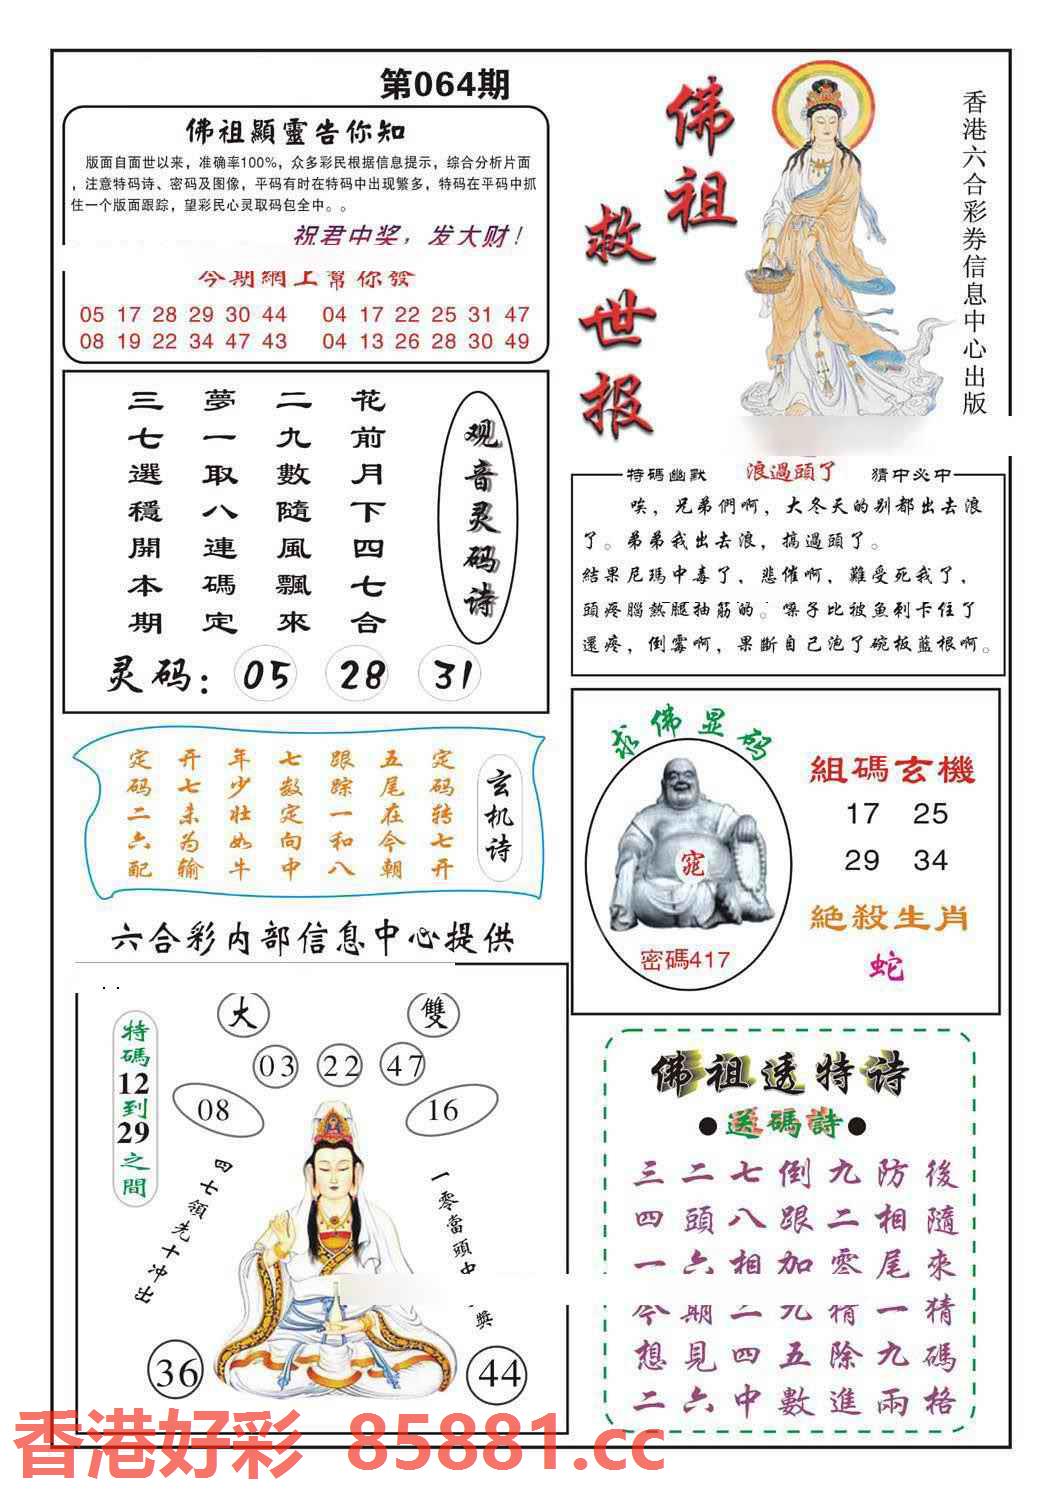 第064期
佛祖顯靈告你知
版面自面世以来，准确率100%，众多彩民根据信息提示，综合分析片面
，注意特码诗、密码及图像，平码有时在特码中出现繁多，特码在平码中抓
住一个版面跟踪，望彩民心灵取码包全中。。
祝君中奖，发大财！
今期網上幫你發
05 17 28 29 30 44 04 17 22 25 31 47
08 19 22 34 47 43 04 13 26 28 30 49
佛祖
救世报
香港六合彩券信息中心出版
观音灵码诗
花前月下四七合
二九數隨風飄來
夢一取八連碼定
三七選穩開本期
灵码：05 28 31
特碼幽默 浪過頭了 猜中必中
唉，兄弟們啊，大冬天的别都出去浪
了。弟弟我出去浪，搞過頭了。
結果尼瑪中毒了，悲催啊，難受死我了，
頭疼腦熱腿抽筋的。嗓子比被魚刺卡住了
還疼，倒霉啊，果斷自己泡了碗板藍根啊。
玄机诗
定码转七开
五尾在今朝
跟踪一和八
七数定向中
年少壮如牛
开七未为输
定码二六配
求佛显码
密碼417
組碼玄機
17 25
29 34
絕殺生肖
蛇
六合彩内部信息中心提供
大 雙
03 22 47
08 16
特碼12到29之間
四七領先十冲出
一零當頭中
獎
36 44
佛祖透特诗
●送碼詩●
三二七倒九防後
四頭八跟二相隨
一六相加零尾來
今期二九精一猜
想見四五除九碼
二六中數進兩格
香港好彩 85881.cc